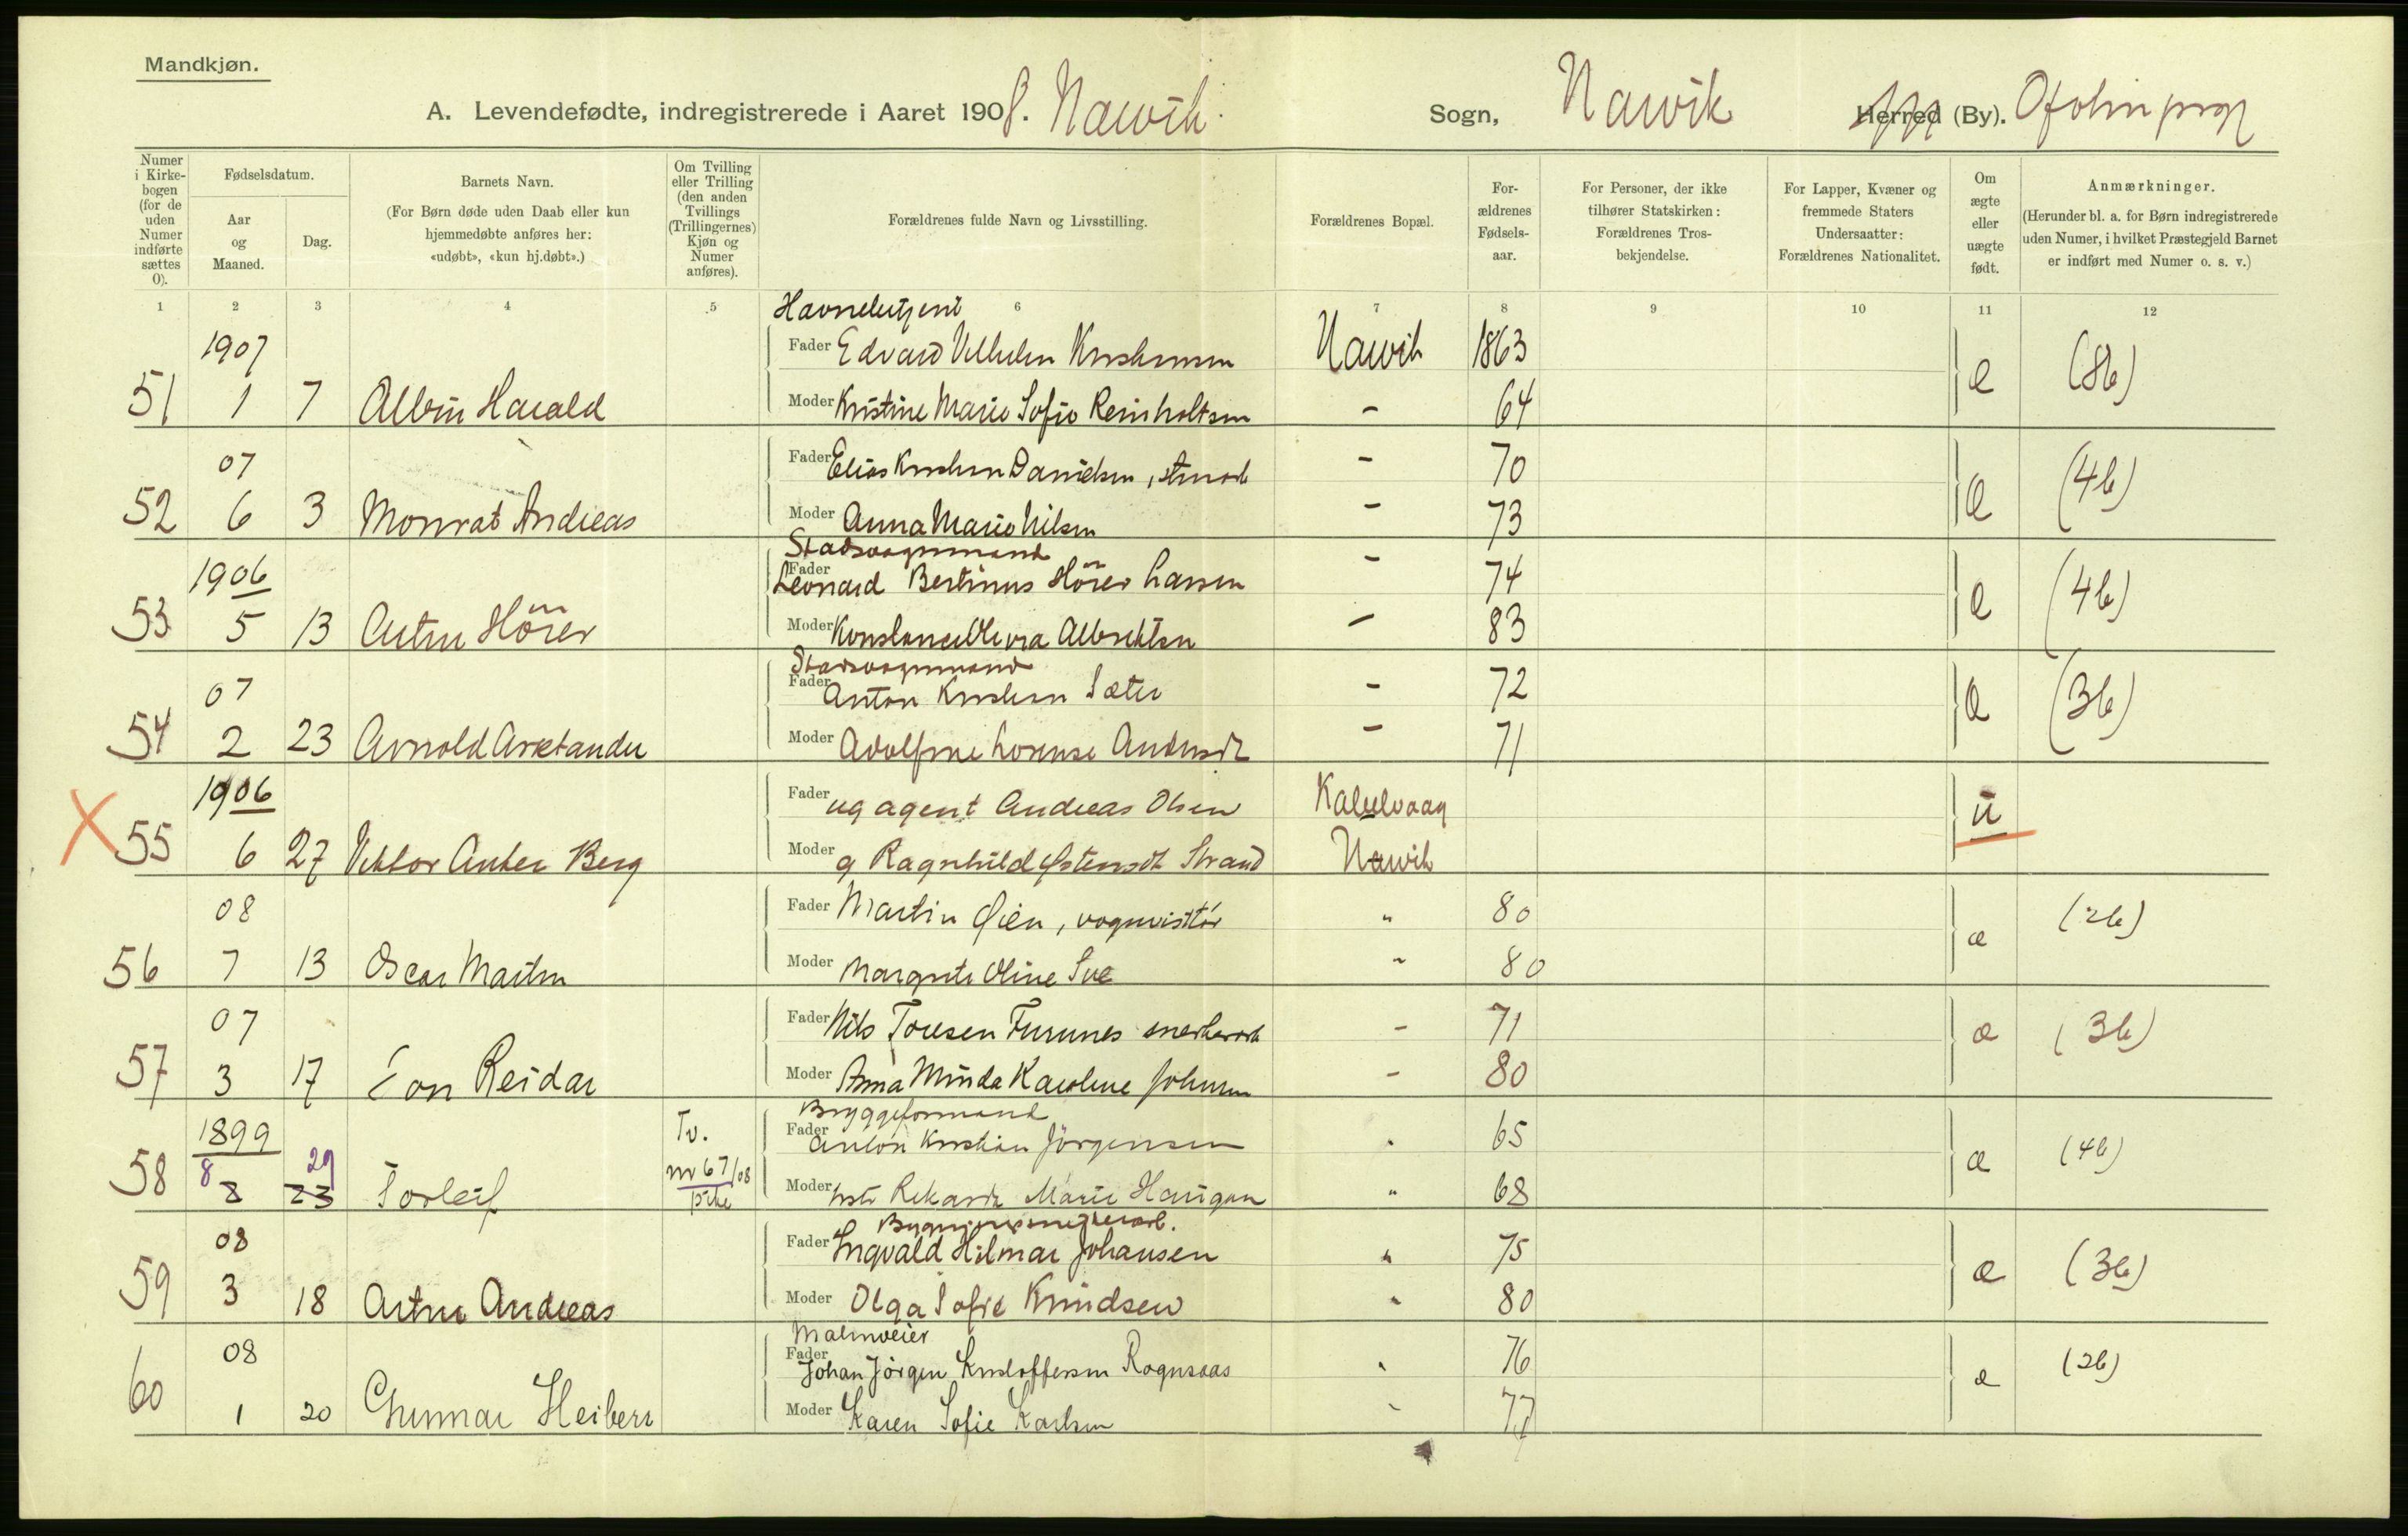 Mandkjøn.
A. Levendefødte, indregistrerede i Aaret 1908. Narvik Sogn, Narvik Herred (By). Ofoten prgj
Numer i Kirkebogen (for de uden Numer indførte sættes 0).
Fødselsdatum.
Aar og Maaned.
Dag.
Barnets Navn.
(For Børn døde uden Daab eller kun hjemmedøbte anføres her: «udøbt», «kun hj.døbt».)
Om Tvilling eller Trilling (den anden Tvillings (Trillingernes) Kjøn og Numer anføres).
Forældrenes fulde Navn og Livsstilling.
Forældrenes Bopæl.
Forældrenes Fødselsaar.
For Personer, der ikke tilhører Statskirken: Forældrenes Trosbekjendelse.
For Lapper, Kvæner og fremmede Staters Undersaatter: Forældrenes Nationalitet.
Om ægte eller uægte født.
Anmærkninger.
(Herunder bl. a. for Børn indregistrerede uden Numer, i hvilket Præstegjeld Barnet er indført med Numer o. s. v.)
1 2 3 4 5 6 7 8 9 10 11 12
Havnebetjent
1907 Fader Edvard Vilhelm Kristensen Narvik 1863
51 1 7 Albin Harald Moder Kristine Marie Sofie Reinholtsen - 64 æ (8b)
07 Fader Elias Kristian Danielsen, - 70
52 6 3 Monrat Andreas Moder Anna Marie Nilsen - 73 æ (4b)
Stadsvognmand
1906 Fader Leonard Bertinus Hörer Larsen - 74
53 5 13 Artur Hörer Moder Konstance Olevra Albriktsen - 83 æ (4b)
Stadsvognmand
07 Fader Anton Kristian Sæter - 72
54 2 23 Arnold Arctander Moder Adolfine Lorense Andersdt - 71 æ (3b)
1906 Fader ug agent Andreas Olsen Kalvaag
55 6 27 Viktor Anker Berg Moder g Ragnhild Østensdt Strand Narvik u
08 Fader Martin Øien, vognvisitør " 80
56 7 13 Oscar Martin Moder Margrete Oline Sve " 80 æ (2b)
07 Fader Nils Toresen Furunes snekkerarb - 71
57 3 17 Tor Reidar Moder Anna Minda Karoline Johnsen - 80 æ (3b)
Bryggeformand
1899 Tv. Fader Anton Kristian Jörgensen " 65
58 8 8 29 23 Torleif nr 67/08 pike Moder hstr Rikarda Marie Haugan " 68 æ (4b)
Bygningssnekkerarb.
08 Fader Ingvald Hilmar Johansen " 75
59 3 18 Artur Andreas Moder Olga Sofie Knudsen " 80 æ (3b)
Malmveier
08 Fader Johan Jörgen Kristoffersen Rognsaas " 76
60 1 20 Gunnar Heiberr Moder Karen Sofie Karlsen " 77 æ (2b)